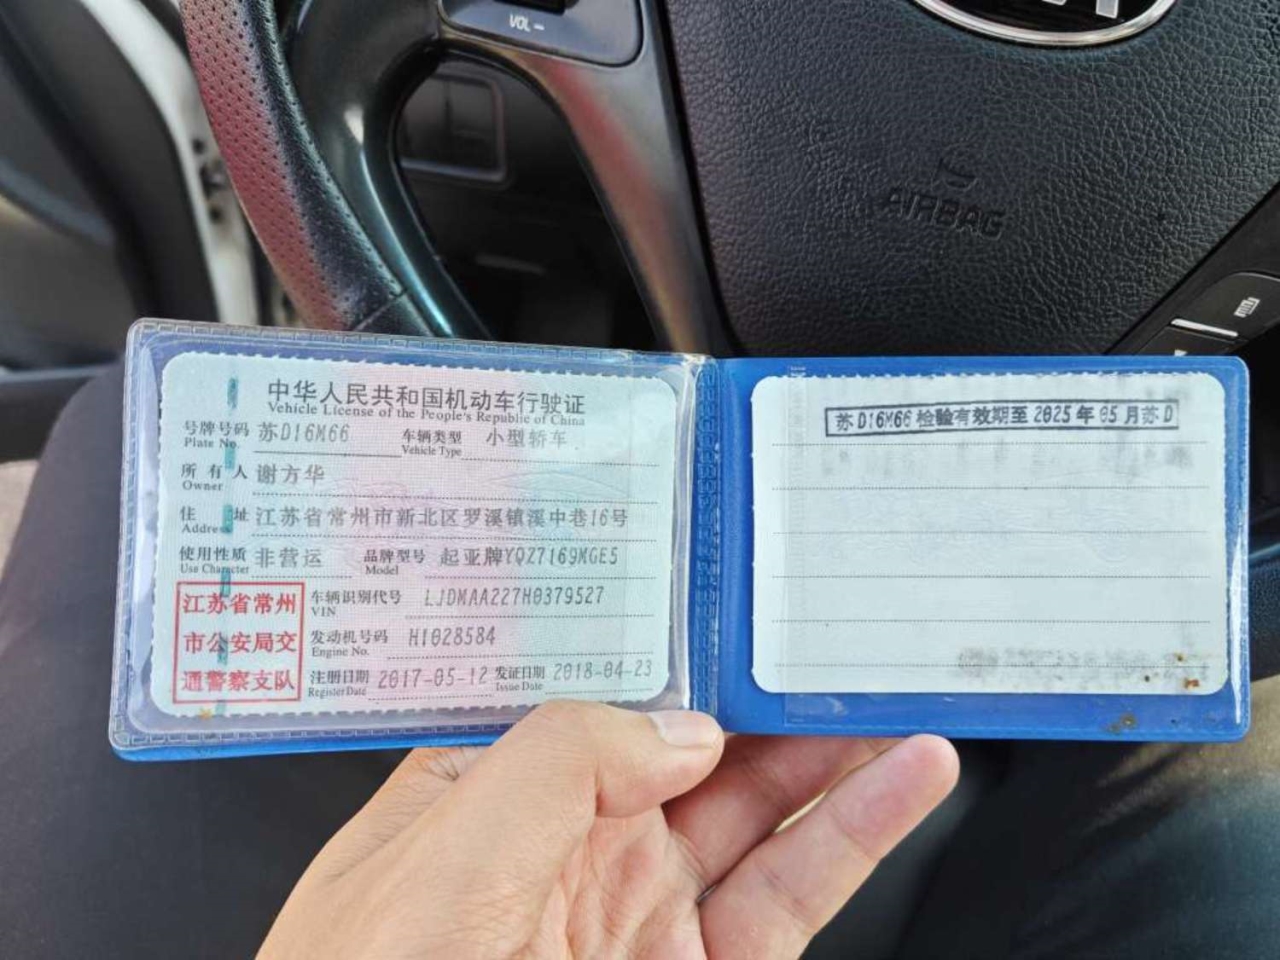 VOL −
AIRBAG
中华人民共和国机动车行驶证
Vehicle License of the People's Republic of China
号牌号码 苏D16M66 车辆类型 小型轿车
Plate No. Vehicle Type
所有人 谢方华
Owner
住址 江苏省常州市新北区罗溪镇溪中巷16号
Address
使用性质 非营运 品牌型号 起亚牌YQZ7169MGE5
Use Character Model
江苏省常州
市公安局交
通警察支队
车辆识别代号 LJDMAA227H0379527
VIN
发动机号码 H1028584
Engine No.
注册日期 2017-05-12 发证日期 2018-04-23
Register Date Issue Date
苏D16M66 检验有效期至 2025年05月苏D